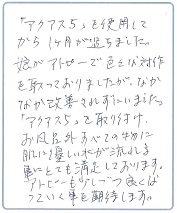 「アクアス5」を使用して
から1ヶ月が過ちました。
娘がアトピーで色々な対策
を取っておりましたが、なか
なか改善されずにいました
「アクアス5」を取り付け、
お風呂外すべての蛇口に
肌に優しい水が流れる
事にとても満足しております。
アトピーも少しづつ良くな
っていく事を期待します。